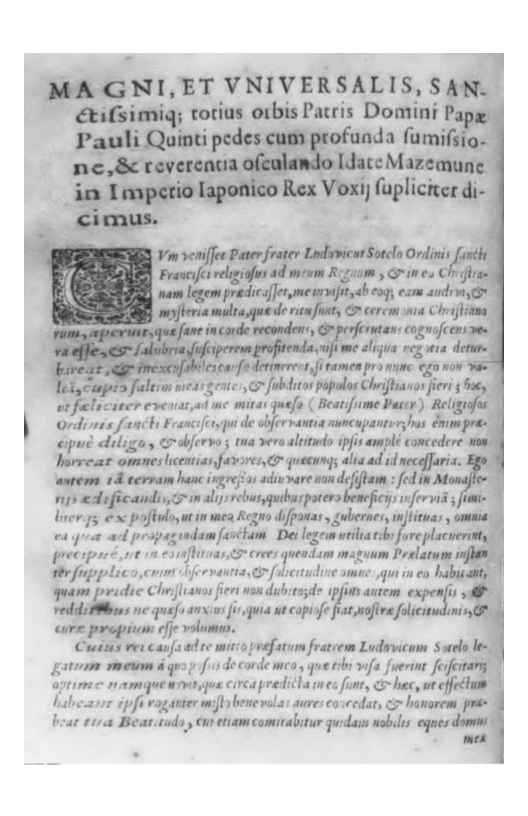 MAGNI, ET VNIVERSALIS, SAN-
ctissimiq; totius orbis Patris Domini Papæ
Pauli Quinti pedes cum profunda sumissio-
ne, & reverentia osculando Idate Mazemune
in Imperio Iaponico Rex Voxij supliciter di-
cimus.
CVm venisset Pater frater Ludovicus Sotelo Ordinis sancti
Francisci religiosus ad meum Regnum, & in eo Christia-
nam legem prædicasset, me invisit, ab eoq; eam audivi, &
mysteria multa, quæ de ritu sunt, & ceremonia Christiano
rum, aperuit, quæ sane in corde recondens, & perscrutans cognoscens ve-
ra esse, & salubria, susciperem profitenda, nisi me aliqua negotia detur-
barent, & inexcusabiles causæ detinerent, si tamen pro nunc ego non va-
leā, cupio saltim meas gentes, & subditos populos Christianos fieri; hoc,
ut fæliciter eveniat, ad me mitas quæso (Beatissime Pater) Religiosos
Ordinis sancti Francisci, qui de observantia nuncupantur; hos enim præ-
cipuè diligo, & observo; tua vero altitudo ipsis amplè concedere non
horreat omnes licentias, favores, & quæcunq; alia ad id necessaria. Ego
autem iā terram hanc ingressos adiuvare non desistam: sed in Monaste-
rijs ædificandis, & in alijs rebus, quibus potero beneficijs inserviā; simi-
literq; expostulo, ut in meo Regno disponas, gubernes, instituas, omnia
ea quæ ad propagandam sanctam Dei legem utilia tibi fore placuerint,
precipuè, ut in eo instituas, & crees quendam magnum Prælatum instan
ter supplico, cum observantia, & solicitudine omnes, qui in eo habitant,
quam pridie Christianos fieri non dubito; de ipsius autem expensis, &
redditibus ne quæso anxius sis, quia ut copiose fiat, nostræ solicitudinis, &
curæ propium esse volumus.
Cuius rei causa ad te mitto præfatum fratrem Ludovicum Sotelo le-
gatum meum à quo posses de corde meo, quæ tibi visa fuerint sciscitari;
optime namque novit, quæ circa prædicta in eo sunt, & hæc, ut effectum
habeant ipsi roganter misto benevolas aures concedat, & honorem præ-
beat tua Beatitudo, cui etiam comitabitur quidam nobilis eques domus
meæ